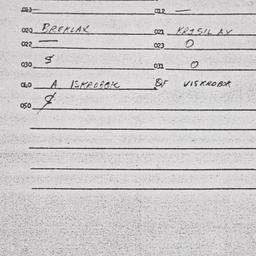 012 —
020 BREKLAK 021 KRISILAY
022 — 023 0
030 031 0
040 A ISKROBOK OF VISKROBOK
050